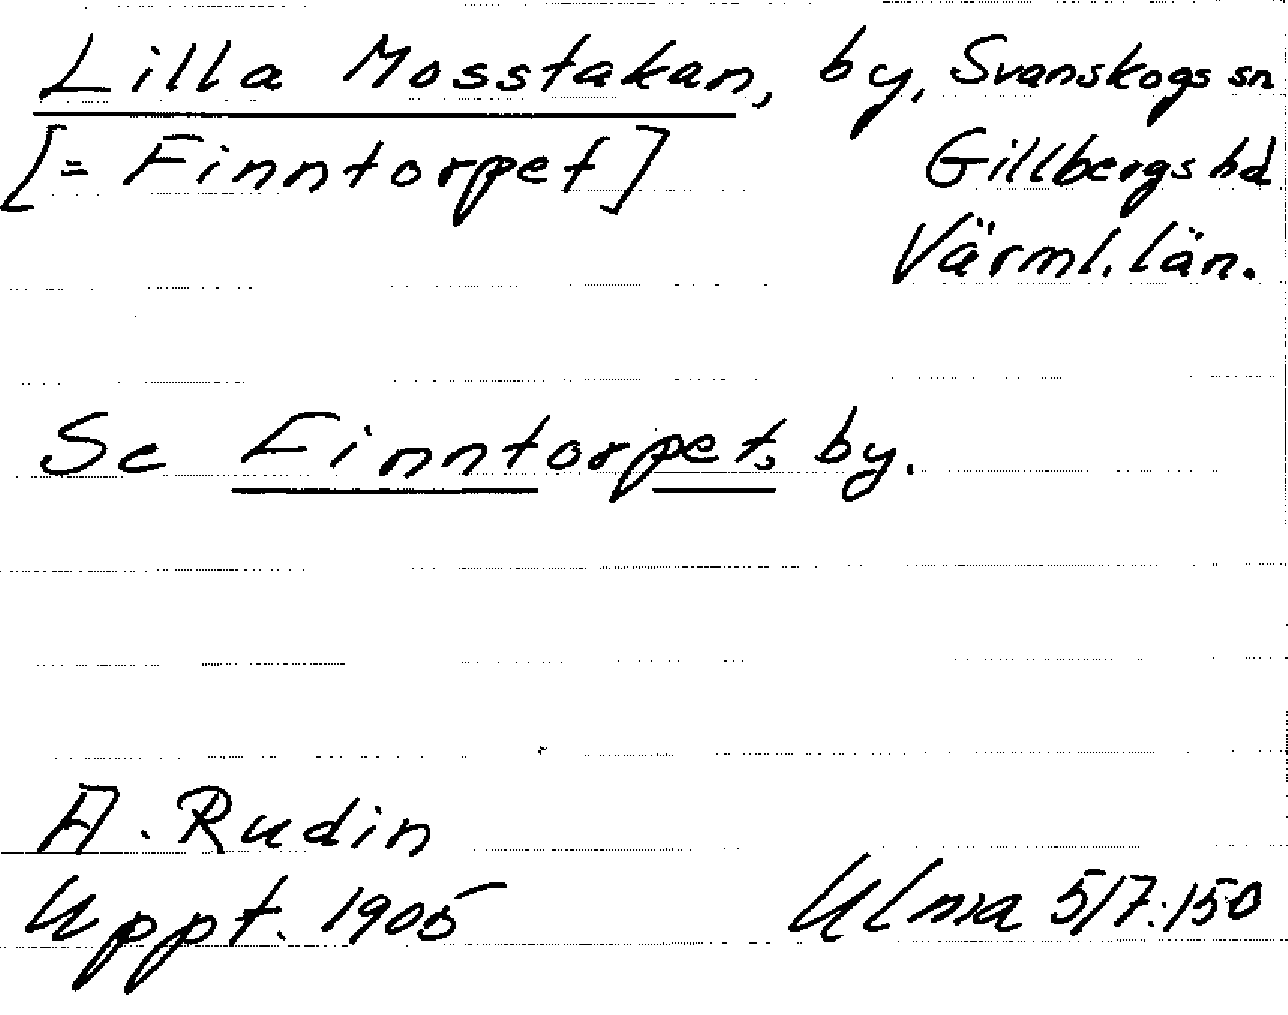 Lilla Mosstakan, by, Svanskogs sn
[= Finntorpet] Gillbergs hd
Värml. län.
Se Finntorpets by.
A. Rudin
Uppt. 1905 Ulma 517:150